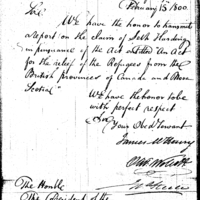 February 15th 1800.
Sir,
We have the honor to transmit
a Report on the Claim of Seth Harding
in pursuance of the Act entitled "An Act
for the relief of the Refugees from the
British provinces of Canada and Nova
Scotia"
We have the honor to be
with perfect respect
Sir,
Your Obed Servant
James McHenry
Oliv Wolcott
The Honble
The President of the